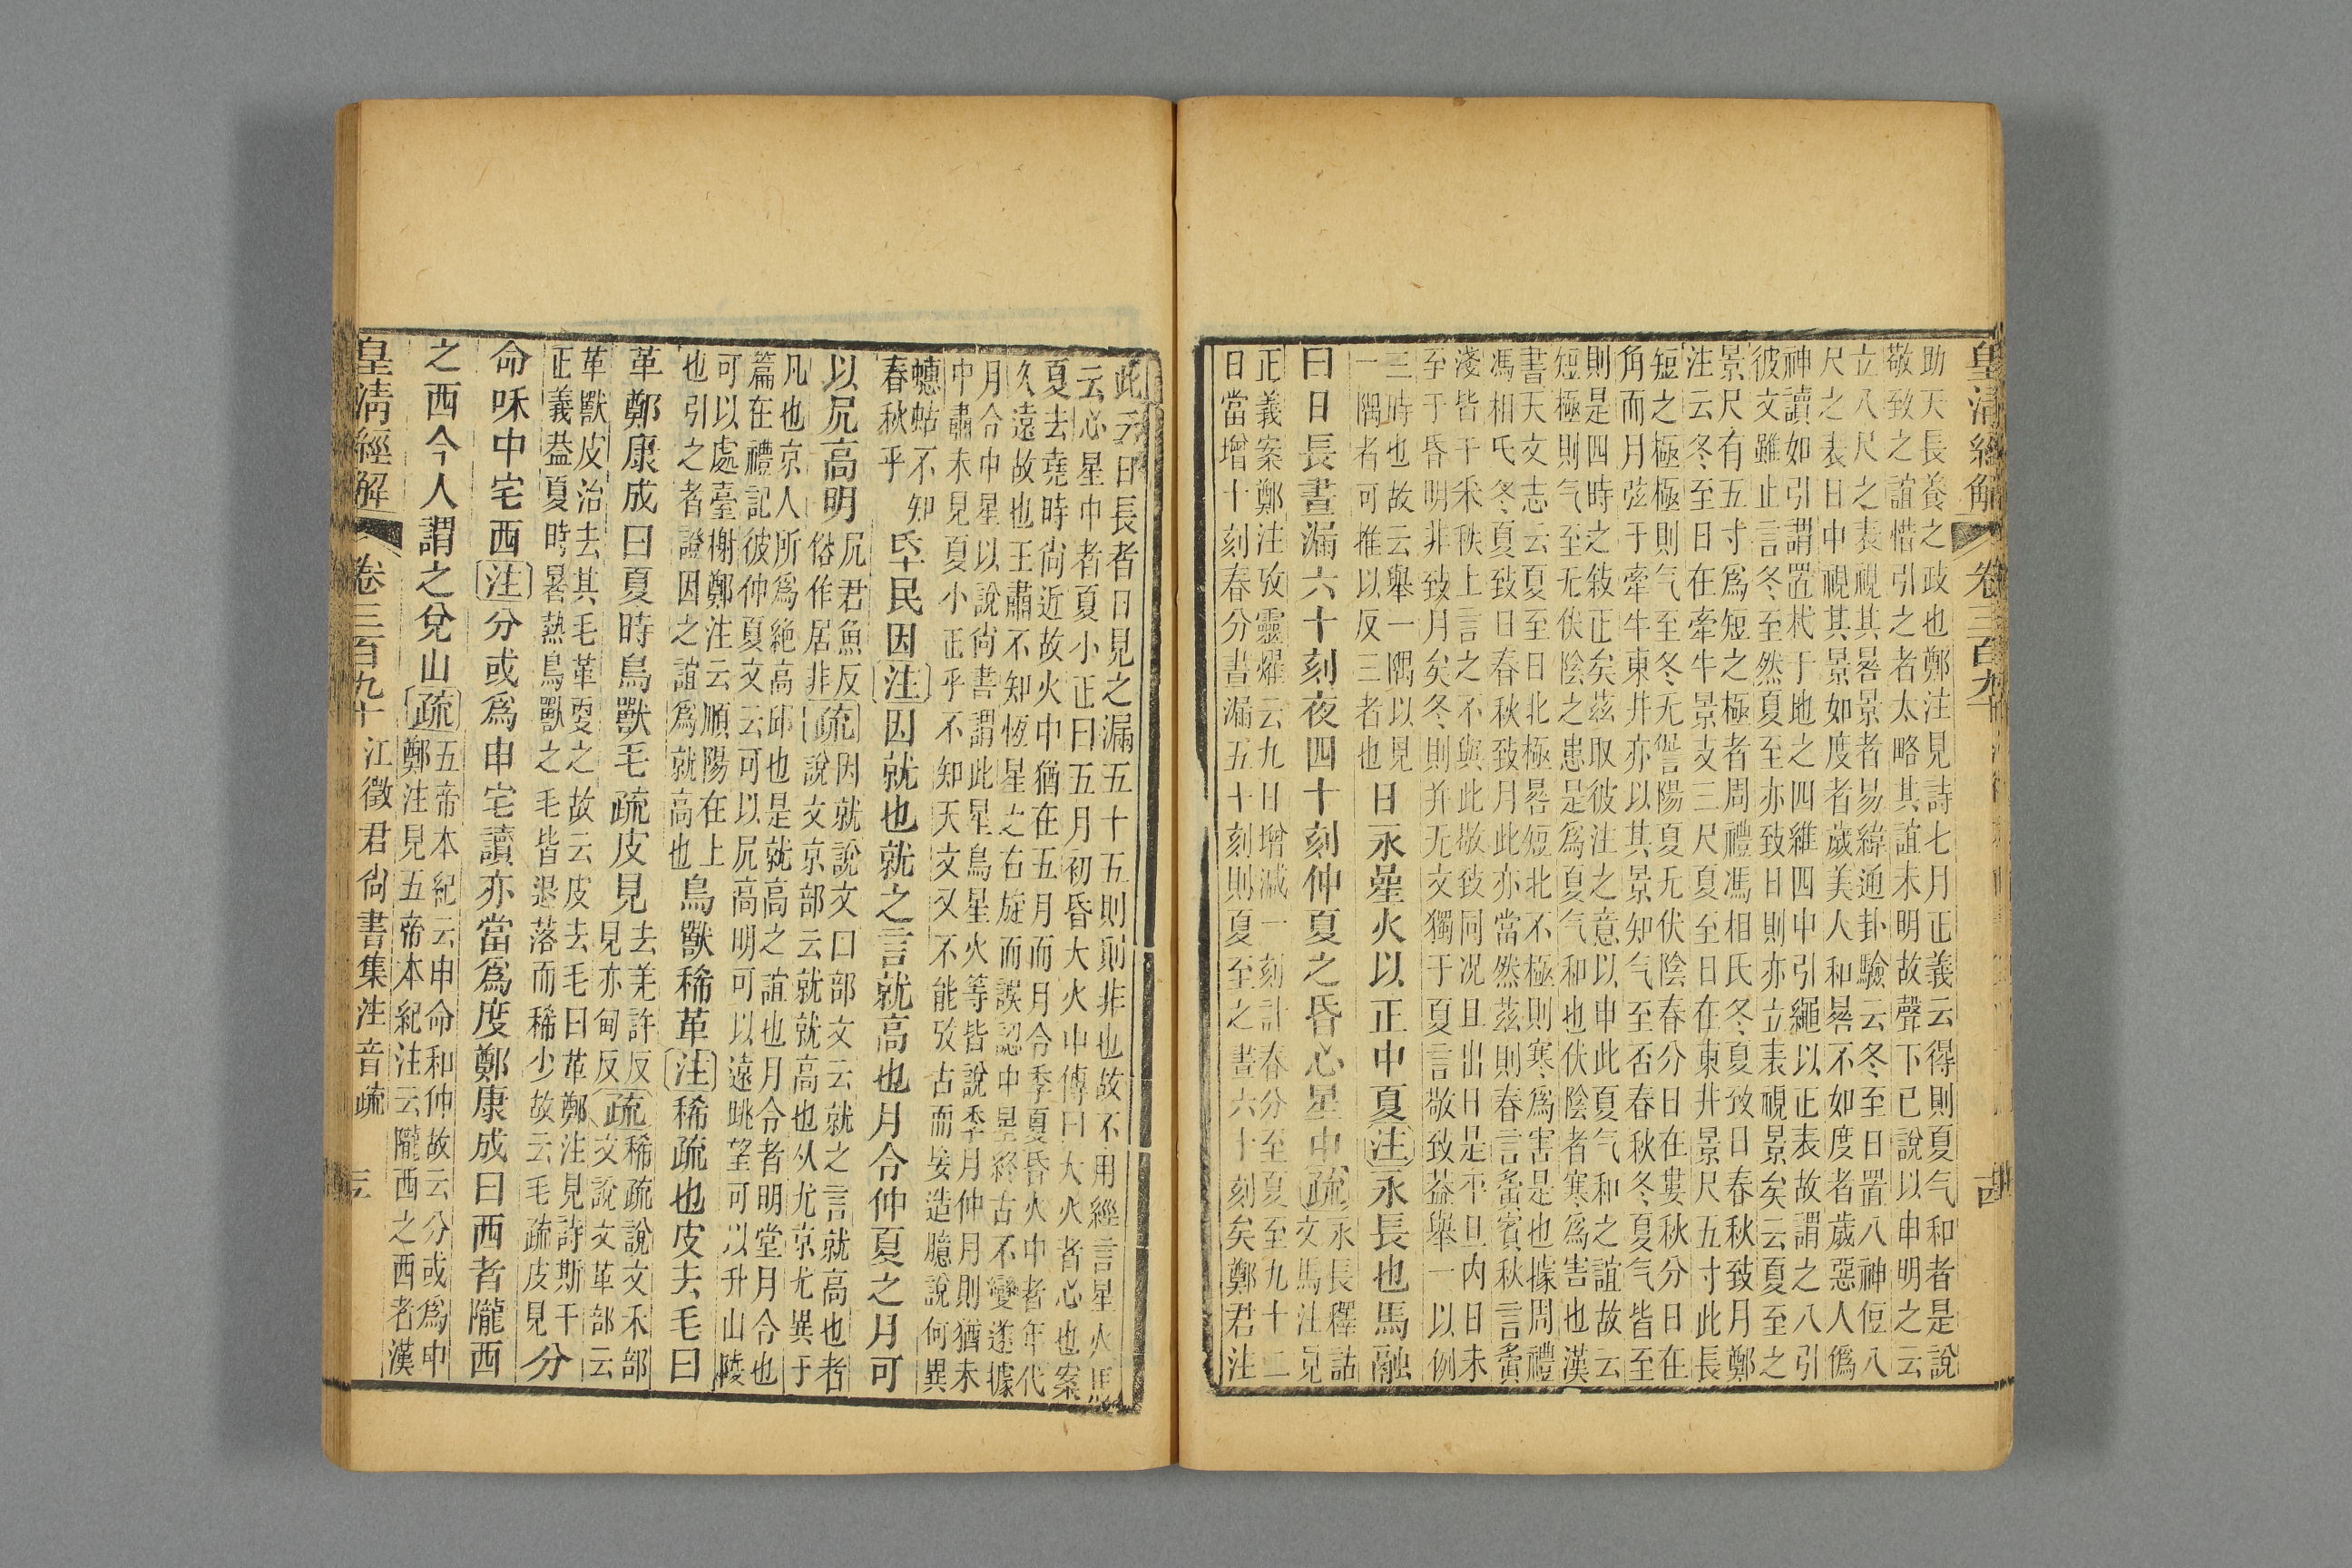 皇清經解 卷三百九十
助天長養之政也鄭注見詩七月正義云得則夏气和者是說
敬致之誼惜引之者太略其誼未明故聲下已說以申明之云
立八尺之表視其晷景者易緯通卦驗云冬至日置八神位八
尺之表日中視其景如度者歲美人和晷不如度者歲惡人僞
神讀如引謂置杙于地之四維四中引繩以正表故謂之八引
彼文雖止言冬至然夏至亦致日則亦立表視景矣云夏至之
景尺有五寸爲短之極者周禮馮相氏冬夏致日春秋致月鄭
注云冬至日在牽牛景丈三尺夏至日在東井景尺五寸此長
短之極極則气至冬无愆陽夏无伏陰春分日在婁秋分日在
角而月弦于牽牛東井亦以其景知气至否春秋冬夏气皆至
則是四時之敍正矣茲取彼注之意以申此夏气和之誼故云
短極則气至无伏陰之患是爲夏气和也伏陰者寒爲害也漢
書天文志云夏至日北極晷短北不極則寒爲害是也據周禮
馮相氏冬夏致日春秋致月此亦當然茲則春言夤賓秋言夤
淺皆于釆秩上言之不與此敬致同况旦出日是平旦內日未
至于昏明非致月矣冬則并无文獨于夏言敬致葢舉一以例
三時也故云舉一隅以見
一隅者可推以反三者也
日永曐火以正中夏注永長也馬融
曰日長晝漏六十刻夜四十刻仲夏之昏心星中疏永長釋詁
文馬注見
正義案鄭注攷靈燿云九日增減一刻計春分至夏至九十二
日當增十刻春分晝漏五十刻則夏至之晝六十刻矣鄭君注
此云日長者日見之漏五十五則則非也故不用經言星火馬
云心星中者夏小正曰五月初昏大火中傳曰大火者心也案
夏去堯時尙近故火中猶在五月而月令季夏昏火中者年代
久遠故也王肅不知恆星之右旋而誤認中星終古不變遂據
月令中星以說尙書謂此星鳥星火等皆說季月仲月則猶未
中肅未見夏小正乎不知天文又不能攷古而妄造臆說何異
蟪蛄不知
春秋乎
氒民因注因就也就之言就高也月令仲夏之月可
以凥高明凥君魚反
俗作居非疏因就說文口部文云就之言就高也者
說文京部云就就高也从尤京尤異于
凡也京人所爲絶高邱也是就高之誼也月令者明堂月令也
篇在禮記彼仲夏文云可以凥高明可以遠眺望可以升山陵
可以處臺榭鄭注云順陽在上
也引之者證因之誼爲就高也
鳥獸稀革注稀疏也皮去毛曰
革鄭康成曰夏時鳥獸毛疏皮見去羌許反
見亦甸反疏稀疏說文禾部
文說文革部云
革獸皮治去其毛革耎之故云皮去毛曰革鄭注見詩斯干
正義葢夏時晷熱鳥獸之毛皆退落而稀少故云毛疏皮見
分
命咊中宅西注分或爲申宅讀亦當爲度鄭康成曰西者隴西
之西今人謂之兌山疏五帝本紀云申命和仲故云分或爲申
鄭注見五帝本紀注云隴西之西者漢
皇清經解 卷三百九十 江徵君尙書集注音疏